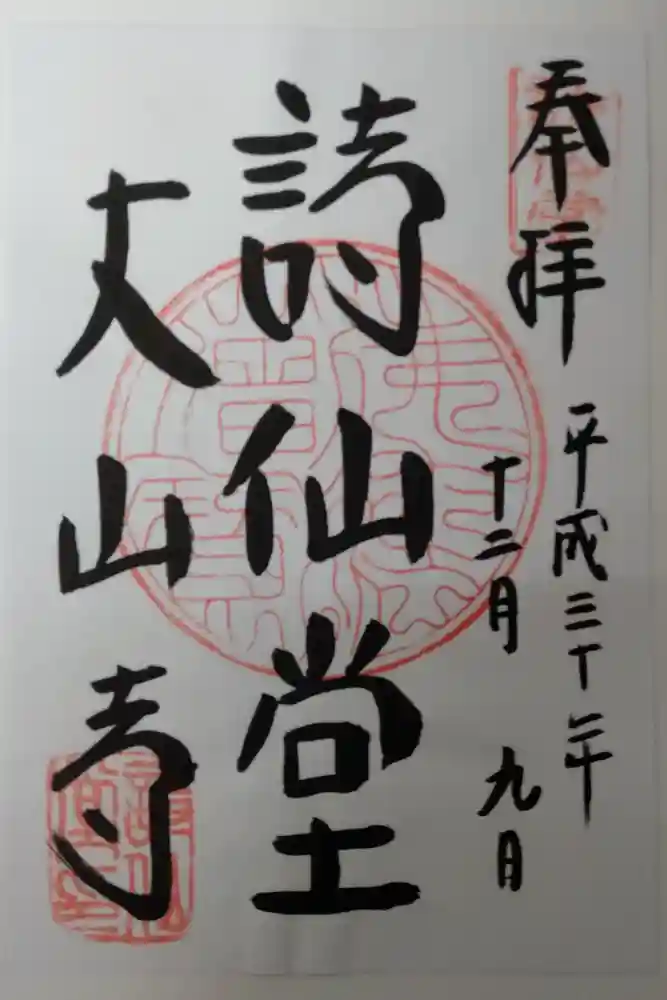 奉拝 平成三十年
十二月 九月
詩仙堂
丈山寺